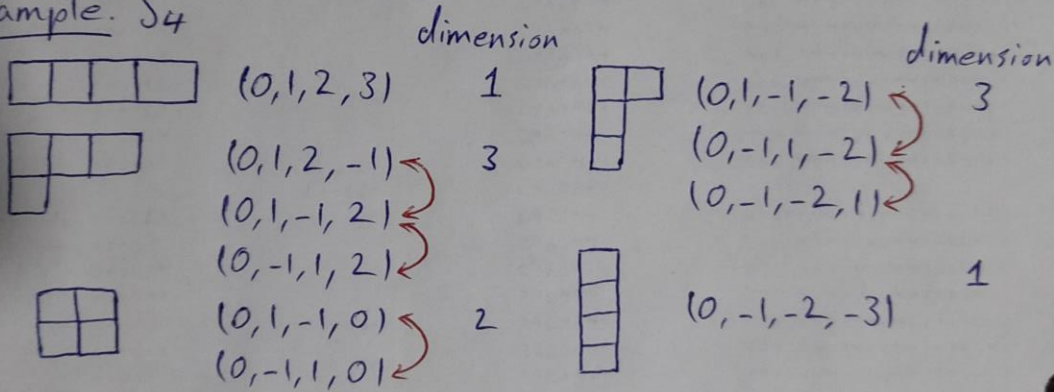 ample. S4
dimension
(0,1,2,3) 1
(0,1,2,-1) 3
(0,1,-1,2)
(0,-1,1,2)
(0,1,-1,0) 2
(0,-1,1,0)
dimension
(0,1,-1,-2) 3
(0,-1,1,-2)
(0,-1,-2,1)
1
(0,-1,-2,-3)